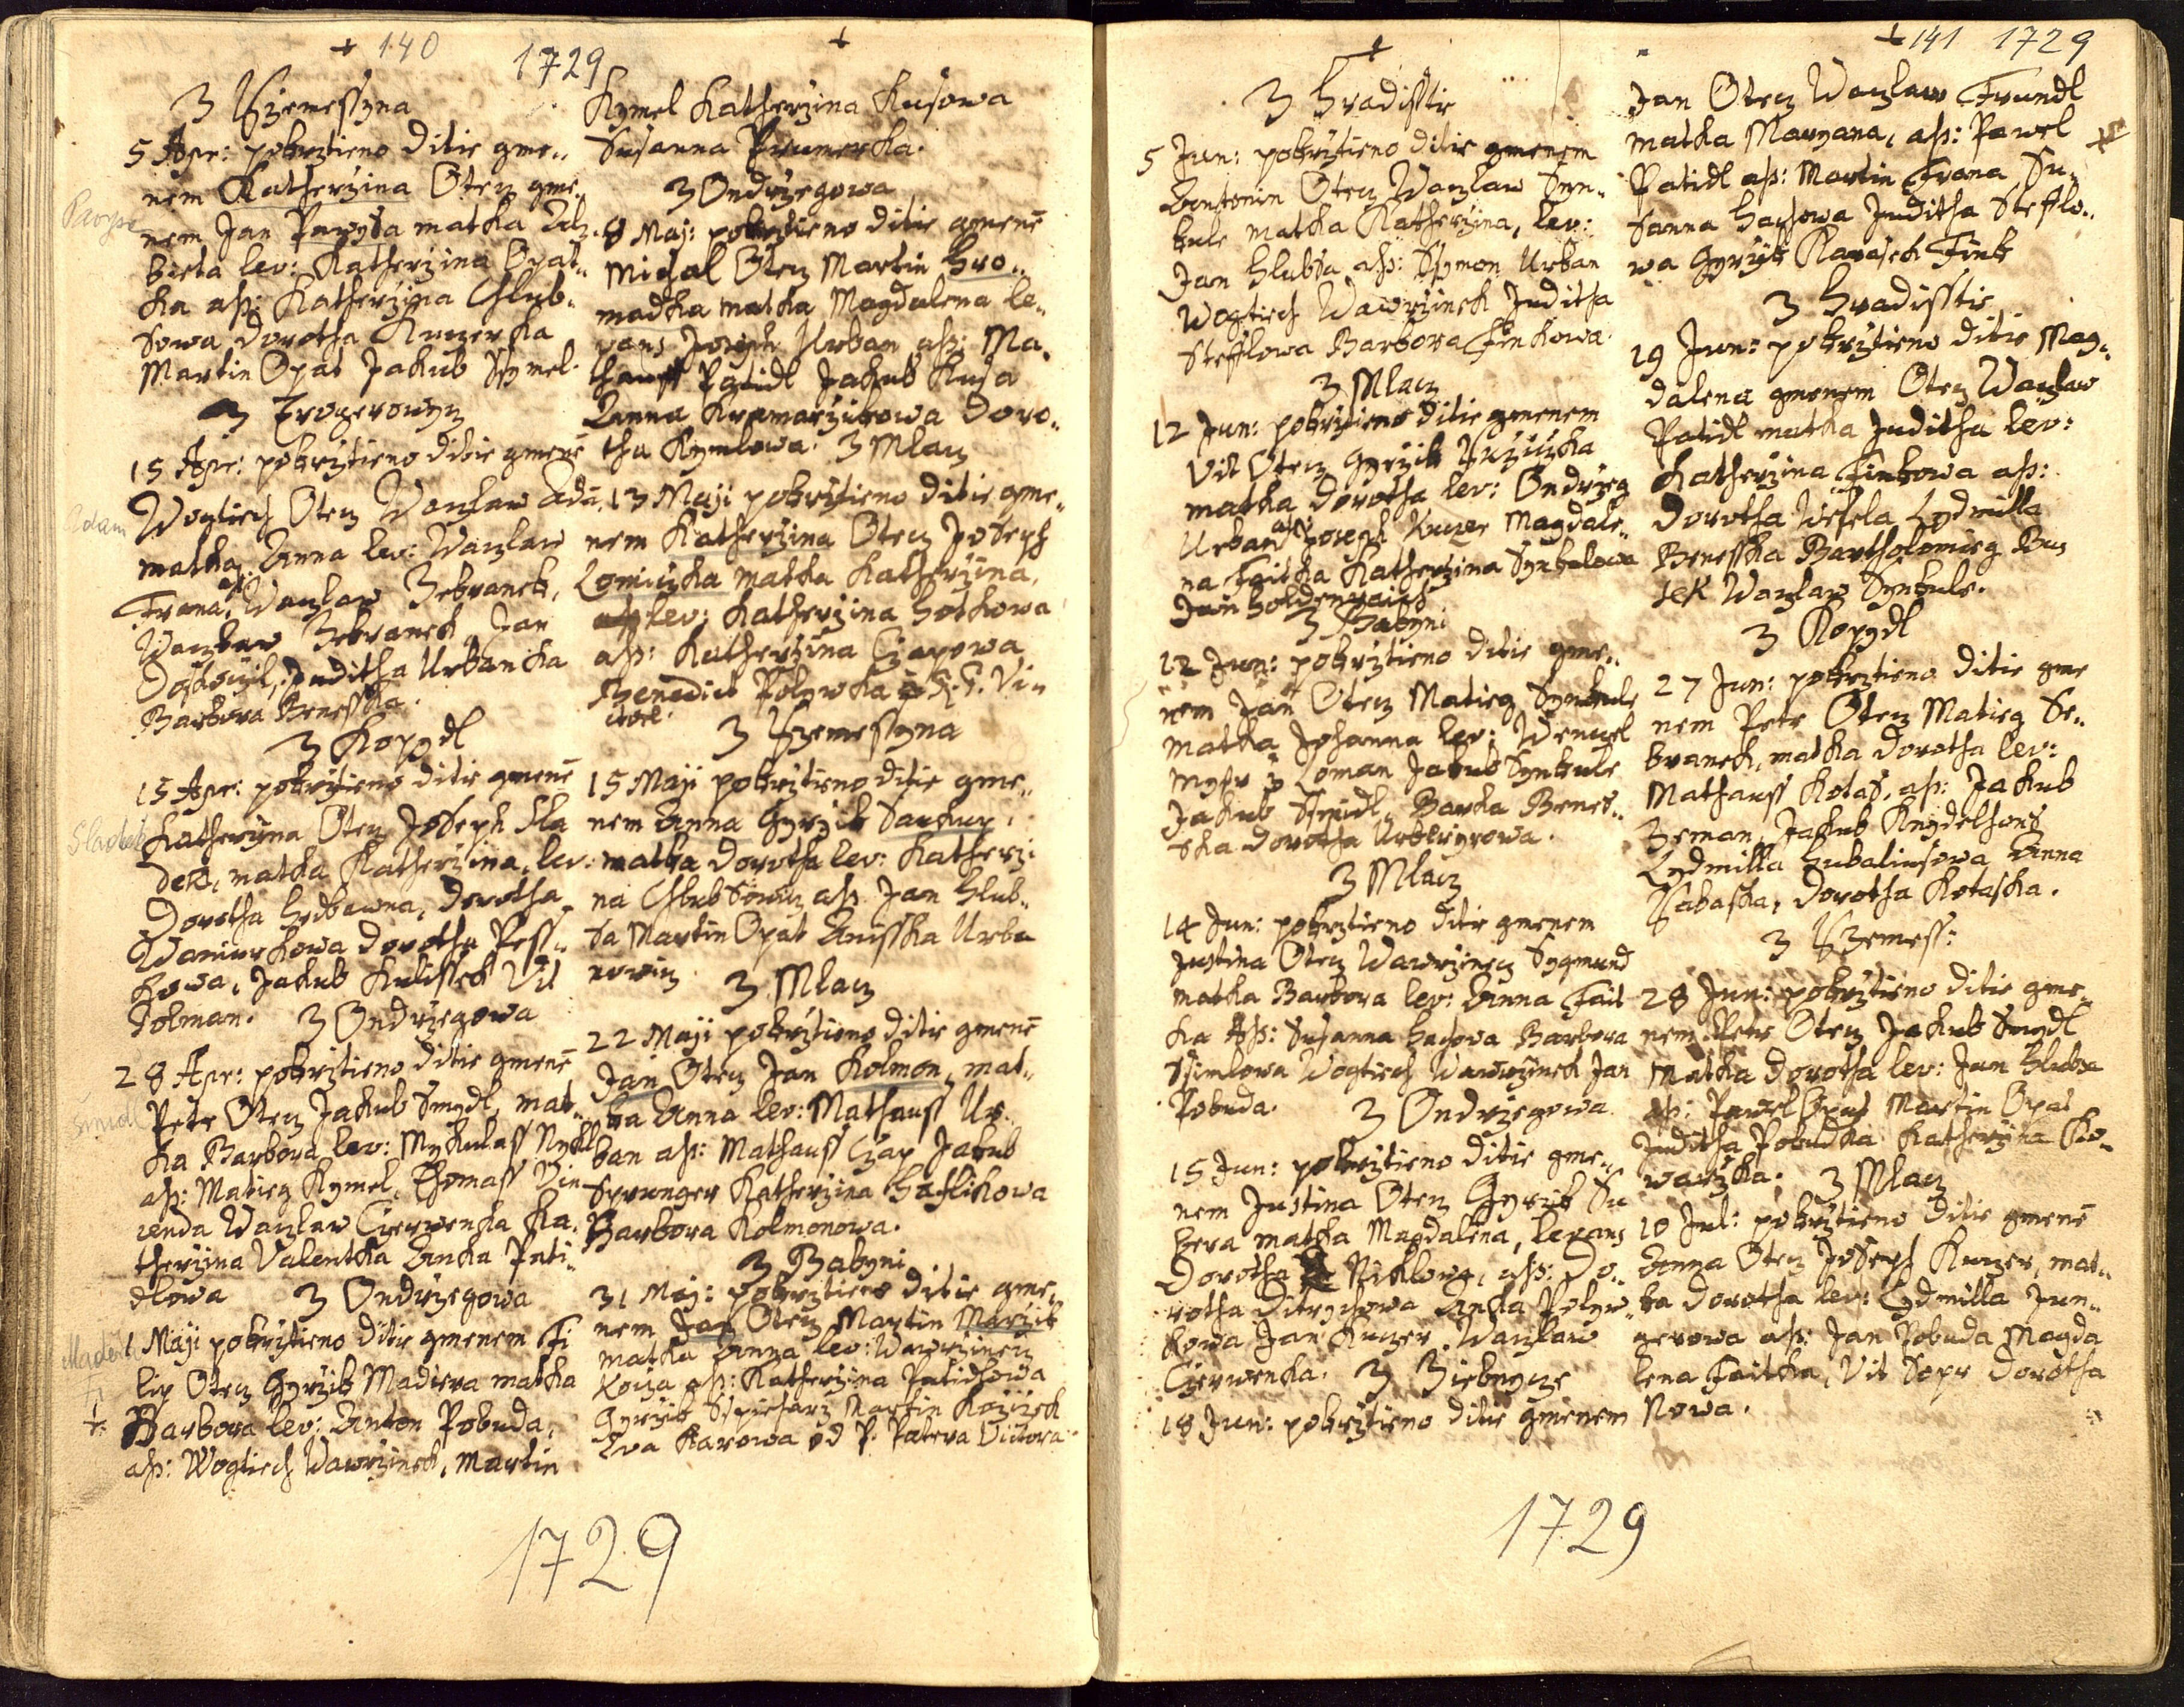 + 140
1729
+
Z Krzemessyna
5 Apr: pokrztieno ditie gme„
nem Katherzina Otecz gme„
nem Jan Parysa matka Alz„
bieta lev: Katherzina Opat„
ka ass: Katherzina Chlub„
sowa Dorotha Kuczerka
Martin Opat Jakub Kymel.
Z
15 Apr: pokrztieno ditie gmenē
Adam
Wogtiech Otecz Waczlaw Adā,
matka Anna lev: Waczlaw
Frana, ass: Waczlaw Zebranek,
Waczlaw Zebranek, Jan
Juditha Urbanka
Barbora Benesska.
Z Kopydl
15 Apr: pokrztieno ditie gmenē
Sladek
Katherzyna Otecz Joseph Sla
dek, matka Katherzina, lev:
Dorotha Dorotha
Dorotha Pess„
kowa, Jakub Kulissek Vit
Dolman. Z Ondrzegowa
28 Apr: pokrztieno ditie gmenē
Petr Otecz Jakub Smydl, mat„
ka Barbora, lev: Mykulass Nykl
ass: Matieg Kymel, Thomass Vin
cenda Waczlaw Czerwenka Ka„
therzina Valentka Anka Pati„
dlowa Z Ondrzegowa
1 Maji pokrztieno ditie gmenem Fi
lip Otecz Gyrzik Madiera matka
Barbora lev: Anton Pobuda,
ass: Wogtiech Wawrzinek, Martin
Kymel Katherzina Kusowa
Susanna Prumerka.
Z Ondrzegowa
8 Maj: pokrztieno ditie gmenē
Michal Otecz Martin Hro„
madka matka Magdalena le„
vans Joseph Urban ass: Ma„
thauss Patidl Jakub Kusa
Anna Kramarzikowa Doro„
tha Kymlowa. Z Mlacz
13 Maji pokrztieno ditie gme„
nem Katherzina Otecz Joseph
Lomiczka matka Katherzina,
lev: Katherzina Hotkowa
ass: Katherzina Czapowa
Benedict Polywka R. P. Vi„
ctore.
Z Krzemessyna
15 Maji pokrztieno ditie gme„
nem Anna Gyrzik Saukup.
matka Dorotha lev: Katherzi„
na Chlubsowicz ass. Jan Hlub„
sa Martin Opat Anisska Urba
nowicz. Z Mlacz
22 Maji pokrztieno ditie gmenē
Jan Otecz Jan Kolmon, mat„
ka Anna lev: Mathauss Ur„
ban ass: Mathauss Czap Jakub
Sprunger Katherzina Haflikowa
Barbora Kolmonowa.
Z Babyni
31 Maj: pokrztieno ditie gme„
nem Jan Otecz Martin Marzik
matka Anna lev: Wawrzinecz
Koza ass: Katherzina Patidlowa
Gyrzik Martin Kozissek
Eva Karowa od P. Patera Victora
1729
+
+ 141 1729
Z Hradisstie
5 Jun: pokrztieno ditie gmenem
Antonin Otecz Waczlaw Syn„
kule matka Katherzina, lev:
Jan Hlubsa ass: Ssymon Urban
Wogtiech Wawrzinek Juditha
Stefflowa Barbora Finkowa.
Z Mlacz
12 Jun: pokrztieno ditie gmenem
Vit Otecz Gyrzik Ruzuzka
matka Dorotha lev: Ondrzeg
Urban ass: Joseph Kuczer Magdale„
na Faitka Katherzina Synkulowa
Jan
Z Babyni
12 Jun: pokrztieno ditie gme„
nem Jan Otecz Matieg Synkule
matka Johanna lev: Wenczel
Loman Jakub Synkule
Jakub Barka Benes„
ska Dorotha
Z Mlacz
14 Jun: pokrztieno ditie gmenem
Justina Otecz Wawrzinecz Sygmund
matka Barbora lev: Anna Fait
ka Ass: Susanna Hasowa Barbora
Wogtiech Wawrzinek Jan
Pobuda. Z Ondrzegowa
15 Jun: pokrztieno ditie gme„
nem Justina Otecz Gyrzik Su
kera matka Magdalena, levans
Dorotha Niklowa, ass: Do„
rotha Ditrychowa Anka Polyw„
kowa Jan Kuczer Waczlaw
Czerwenka. Z
18 Jun: pokrztieno ditie gmenem
Jan Otecz Waczlaw Trundl
matka Maryana, ass: Pawel
Patidl ass: Martin Frana Su„
sanna Hasowa Juditha Stefflo„
wa Gyrzik Karasek Fink
Z Hradisstie
19 Jun: pokrztieno ditie Mag„
dalena gmenem Otecz Waczlaw
Patidl matka Juditha lev:
Katherzina Finkowa ass:
Dorotha Wesela Lydmilla
Benesska Bartholomieg Bu„
sek Waczlaw Synkule.
Z Kopydl
27 Jun: pokrztieno ditie gme
nem Petr Otecz Matieg Ze„
branek, matka Dorotha lev:
Mathauss Kotas, ass: Jakub
Zeman, Jakub
Lydmilla Anna
Dorotha Kotaska.
Z Krzemess:
28 Jun: pokrztieno ditie gme„
nem Petr Otecz Jakub Smydl
matka Dorotha lev: Jan Hlubsa
ass: Pawel Opat Martin Opat
Juditha Pobudka Katherzina Ko„
warzka. Z Mlacz
10 Jul: pokrztieno ditie gmenē
Anna Otecz Joseph Kuczer, mat„
ka Dorotha lev: Lydmilla Jun„
gerowa ass: Jan Pobuda Magda
lena Faitka, Vit Dorotha
Nowa.
1729